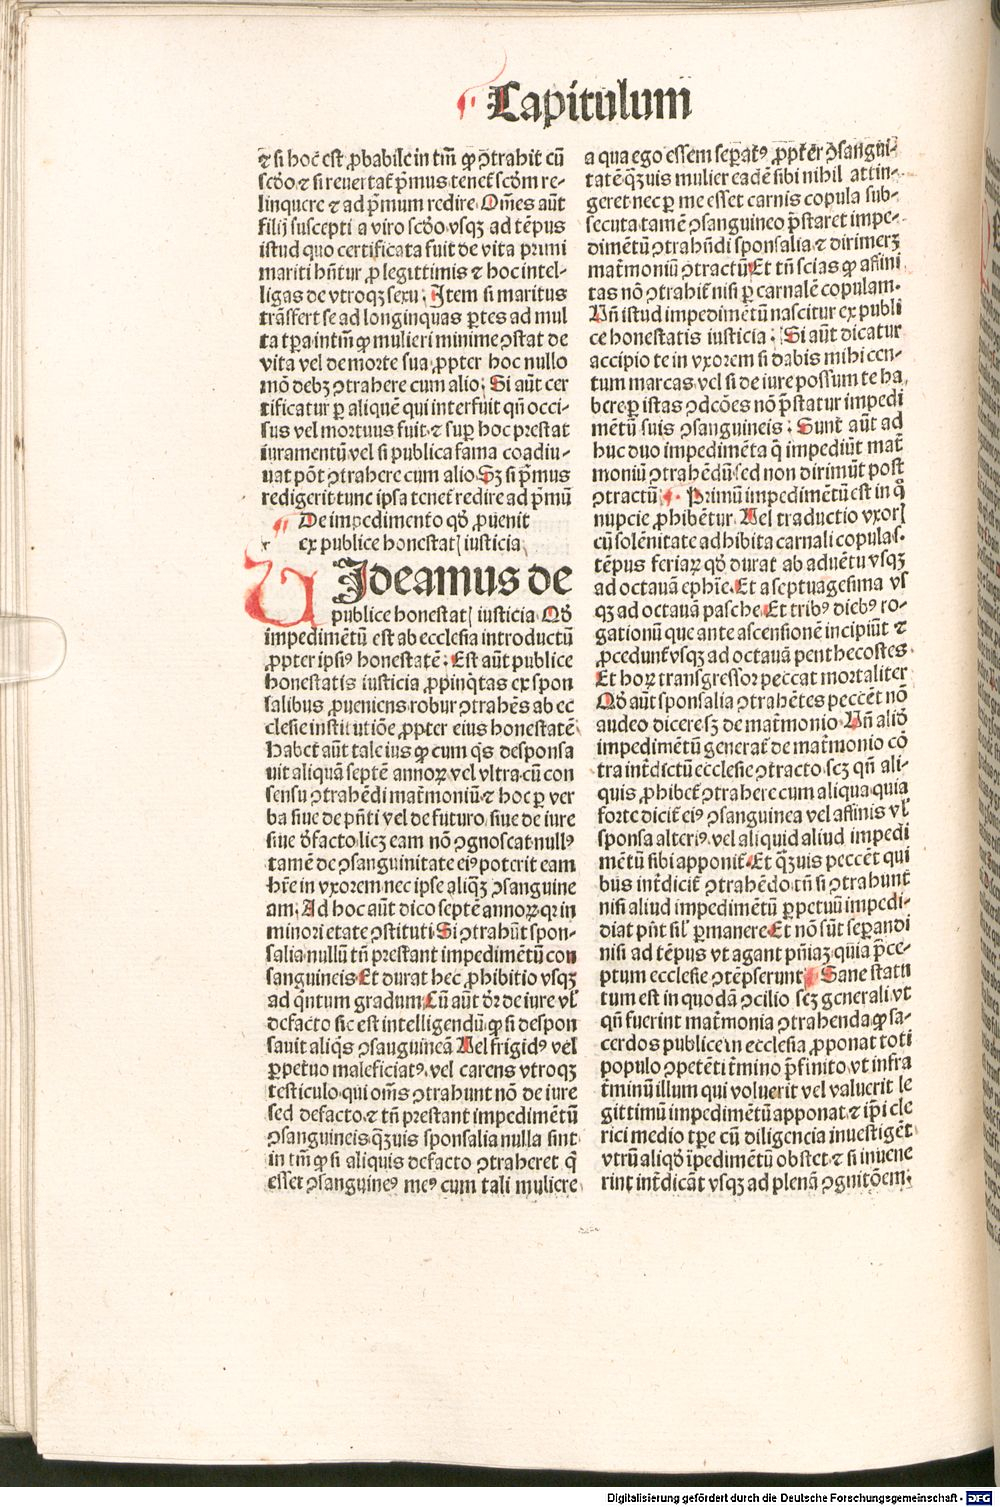 Capitulum
⁊ si hoc̄ est ꝓbabile in tm̄ ꝙ ꝯtrahit cū
scd̄o ⁊ si reuertat᷑ pͥmus tenet᷑ scd̄m re-
linquere ⁊ ad pͥmum redire Om̄es aūt
filij suscepti a viro scd̄o vsqꝫ ad tēpus
istud quo certificata fuit de vita primi
mariti hn̄tur ꝓ legittimis ⁊ hoc intel-
ligas de vtroqꝫ sexu. Item si maritus
trāsfert se ad longinquas ꝑtes ad mul
ta tꝑa intm̄ ꝙ mulieri minime ꝯstat de
vita vel de morte sua ꝓpter hoc nullo
mō debꝫ ꝯtrahere cum alio. Si aūt cer
tificatur ꝑ aliquē qui interfuit qn̄ occi-
sus vel mortuus fuit ⁊ suꝑ hoc prestat
iuramentū vel si publica fama coadiu-
uat pōt ꝯtrahere cum alio Sꝫ si pͥmus
redigerit tunc ipsa tenet᷑ redire ad pͥmū
De impedimento qd̄ ꝓuenit
ex publice honestatꝭ iusticia
VIdeamus de
publice honestatꝭ iusticia Qd̄
impedimētū est ab ecclesia introductū
ꝓpter ipsiꝰ honestatē. Est aūt publice
honestatis iusticia ꝓpinqͥtas ex spon
salibus ꝓueniens robur ꝯtrahēs ab ec
clesie institutiōe ꝓpter eius honestatē
Habet aūt tale ius ꝙ cum qͥs desponsa
uit aliquā septē annoꝝ vel vltra cū con
sensu ꝯtrahēdi mat᷑moniū ⁊ hoc ꝑ ver
ba siue de pn̄ti vel de futuro siue de iure
siue d̄ facto licꝫ eam nō ꝯgnoscat nullꝰ
tamē de ꝯsanguinitate eiꝰ poterit eam
hr̄e in vxorem nec ipse aliqͣꝫ ꝯsanguine
am. Ad hoc aūt dico septē annoꝝ qꝛ in
minori etate ꝯstituti Si ꝯtrahūt spon-
salia nullū tn̄ prestant impedimētū con
sanguineis Et durat hec ꝓhibitio vsqꝫ
ad qͥntum gradum Cū aūt dr̄ de iure vl̓
defacto sic est intelligendū ꝙ si despon
sauit aliqͥs ꝯsanguineā Vel frigidꝰ vel
ꝑpetuo maleficiatꝰ vel carens vtroqꝫ
testiculo qui om̄s ꝯtrahunt nō de iure
sed defacto ⁊ tn̄ prestant impedimētū
ꝯsanguineis qͣꝫuis sponsalia nulla sint
in tm̄ ꝙ si aliquis defacto ꝯtraheret qͥ
esset ꝯsanguineꝰ meꝰ cum tali muliere
a qua ego essem seꝑatꝰ ꝓpt̄er ꝯsangui-
tatē qͣꝫuis mulier eadē sibi nihil attin-
geret nec ꝑ me esset carnis copula sub-
secuta tamē ꝯsanguineo p̄staret impe-
dimētū ꝯtrahn̄di sponsalia ⁊ dirimerꝫ
mat᷑moniū ꝯtractū Et tn̄ scias ꝙ affini
tas nō ꝯtrahit᷑ nisi ꝑ carnalē copulam.
Vn̄ istud impedimētū nascitur ex publi
ce honestatis iusticia. Si aūt dicatur
accipio te in vxorem si dabis mihi cen-
tum marcas vel si de iure possum te ha
bere ꝑ istas ꝯdcōes nō p̄statur impedi
mētū suis ꝯsanguineis. Sunt aūt ad
huc duo impedimēta q̄ impediūt mat᷑
moniū ꝯtrahēdū sed non dirimūt post
ꝯtractū Primū impedimētū est in qͦ
nupcie ꝓhibētur Vel traductio vxorꝭ
cū solēnitate adhibita carnali copula s.
tēpus feriaꝝ qd̄ durat ab aduētu vsqꝫ
ad octauā ephīe. Et a septuagesima vs
qꝫ ad octauā pasche Et tribꝰ diebꝰ ro-
gationū que ante ascensionē incipiūt ⁊
ꝓcedunt vsqꝫ ad octauā penthecostes
Et hoꝝ transgressor peccat mortaliter
Qd̄ aūt sponsalia ꝯtrahētes peccēt nō
audeo dicere sꝫ de mat᷑monio Vn̄ aliđ
impedimētū generat᷑ de mat᷑monio cō
tra int᷑dictū ecclesie ꝯtracto scꝫ qn̄ ali-
quis ꝓhibet᷑ ꝯtrahere cum aliqua quia
forte dicit᷑ eiꝰ ꝯsanguinea vel affinis vl̓
sponsa alteriꝰ vel aliquid aliud impedi
mētū sibi apponit᷑ Et qͣꝫuis peccēt qui
bus int᷑dicit᷑ ꝯtrahēdo tn̄ si ꝯtrahunt
nisi aliud impedimētū ꝑpetuū impedi-
diat pn̄t sil̓ ꝑmanere Et nō sūt seꝑandi
nisi ad tēpus vt agant pn̄iaꝫ quia p̄ce-
ptum ecclesie ꝯtēpserunt Sane statu
tum est in quodā ꝯcilio scꝫ generali vt
qn̄ fuerint mat᷑monia ꝯtrahenda ꝙ sa-
cerdos publice in ecclesia ꝓponat toti
populo ꝯpetēti t᷑mino p̄finito vt infra
t᷑minū illum qui voluerit vel valuerit le
gittimū impedimētū apponat ⁊ ip̄i cle
rici medio tꝑe cū diligencia inuestigēt
vtrū aliqd̄ īpedimētū obstet ⁊ si inuene
rint int᷑dicāt vsqꝫ ad plenā ꝯgnitōem.
Digitalisierung gefördert durch die Deutsche Forschungsgemeinschaft - DFG